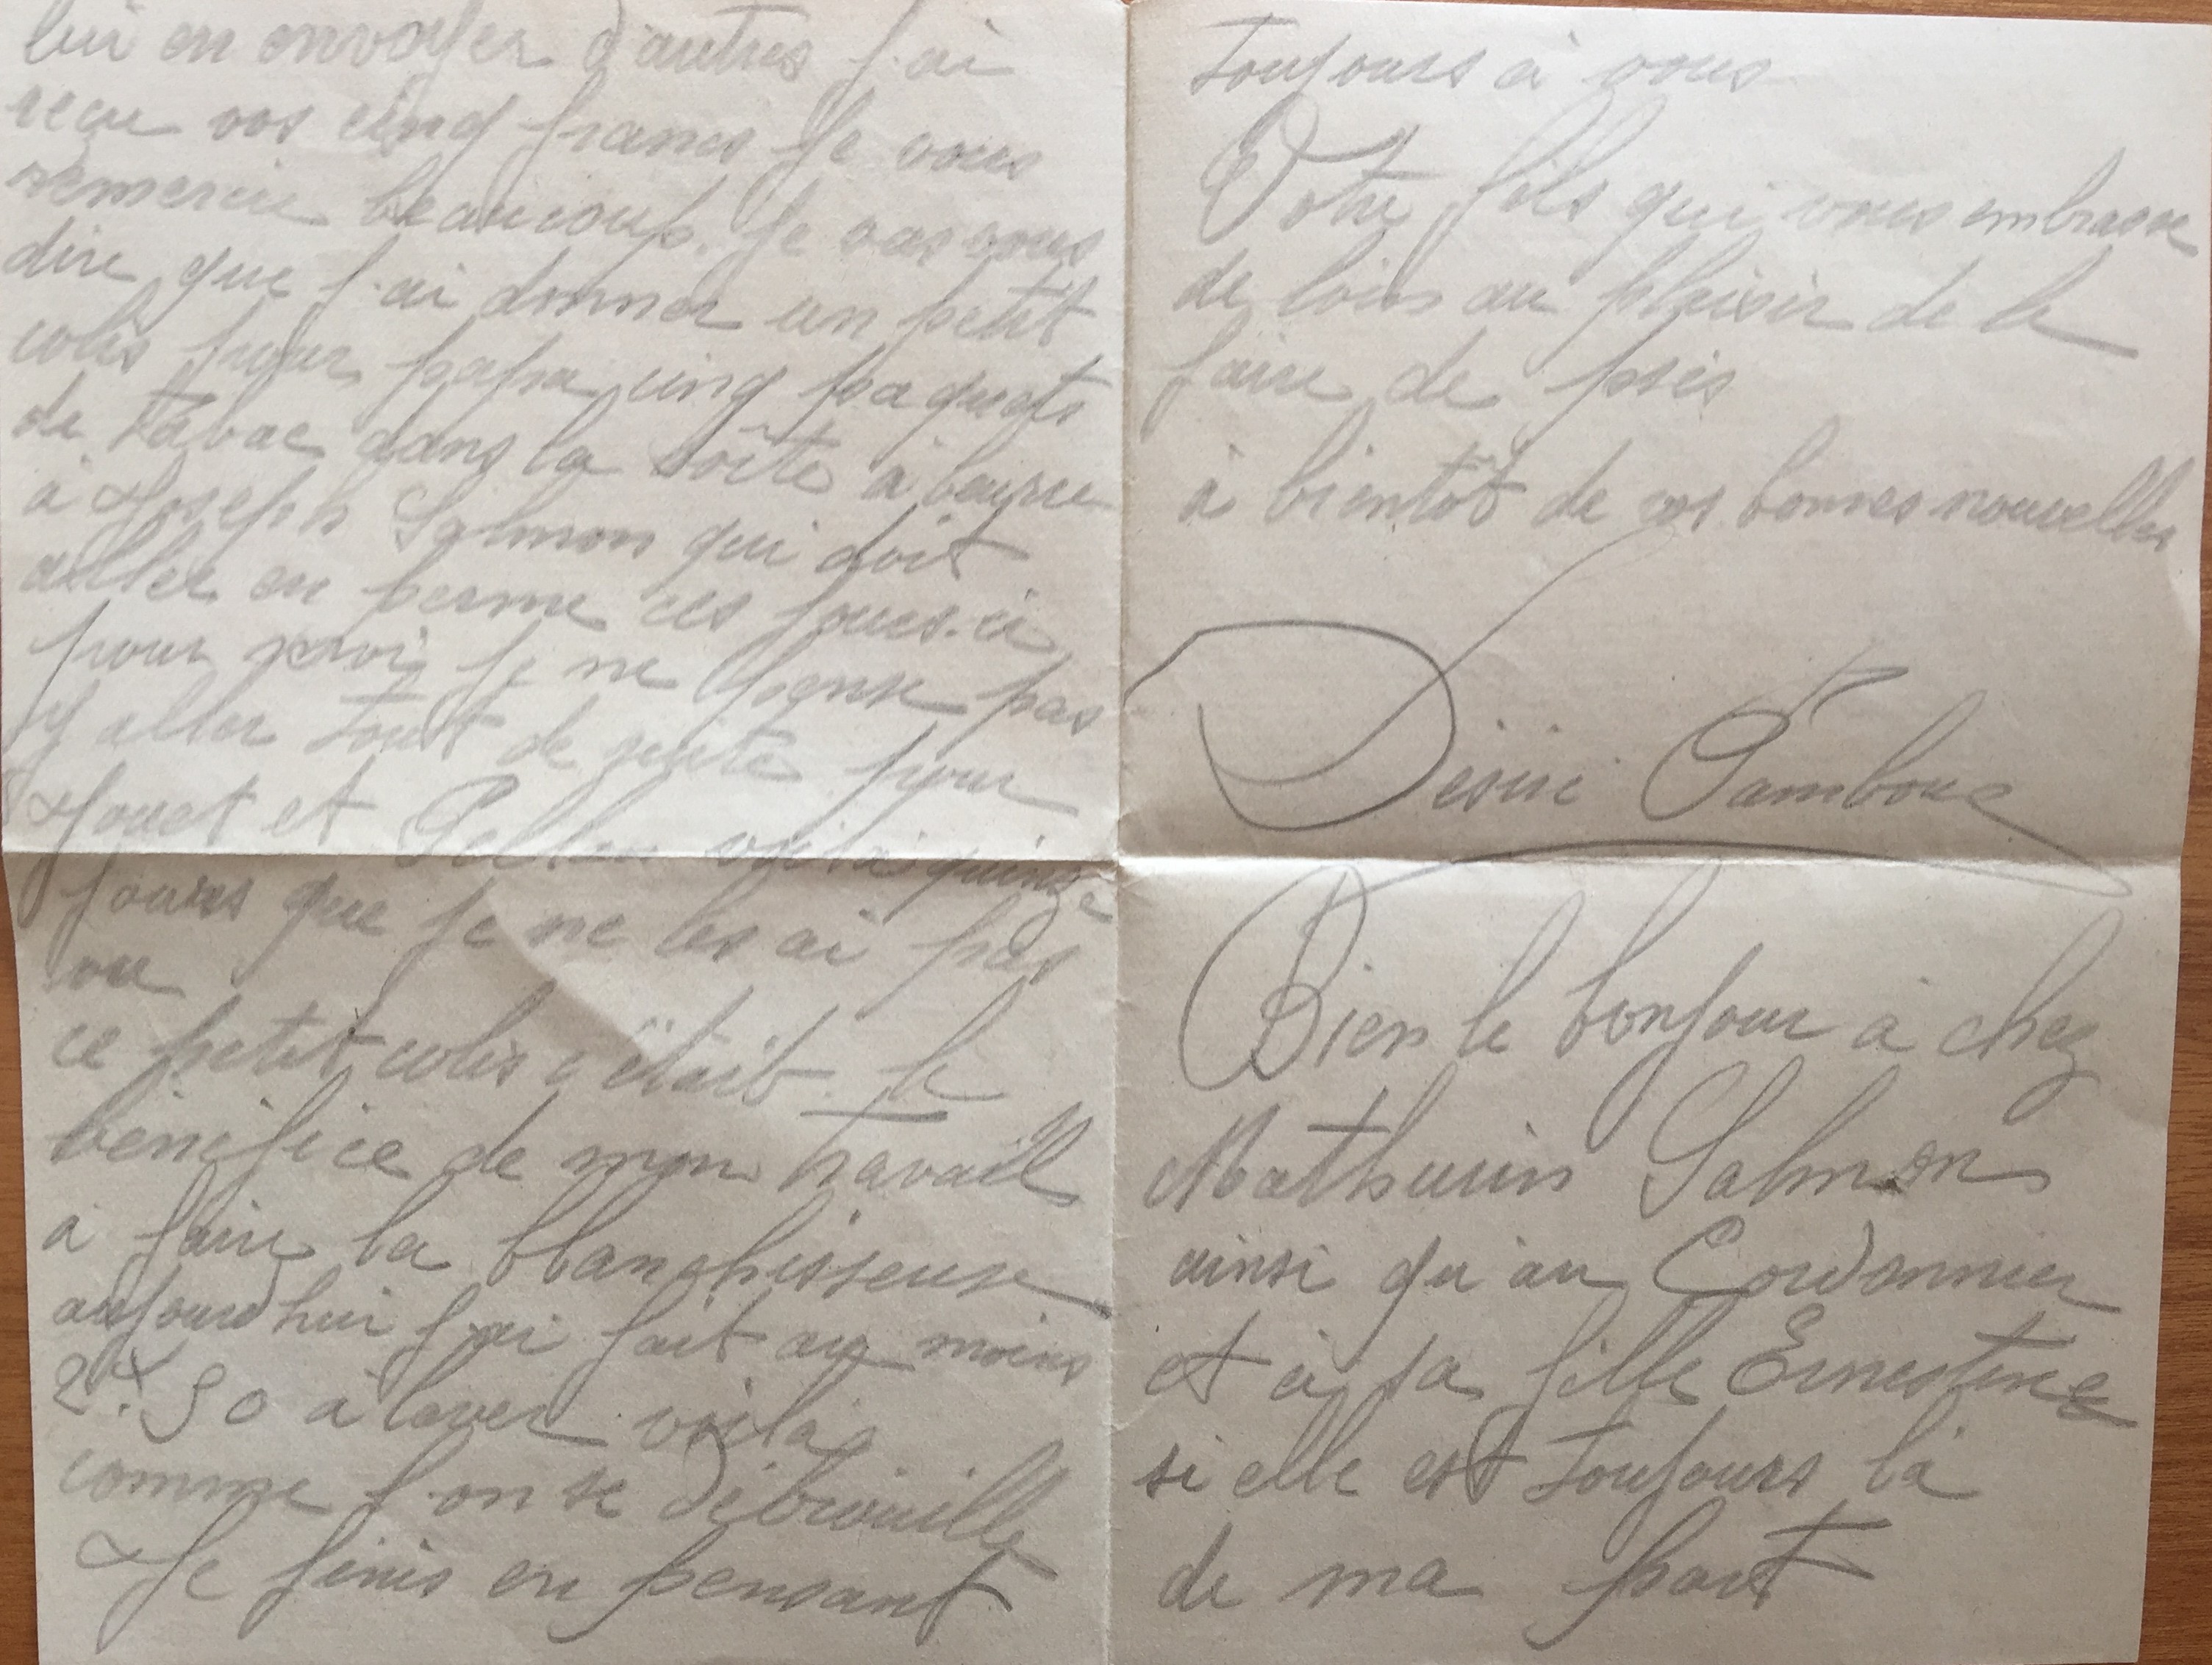 lui en envoyer d'autres j'ai
reçu vos cinq francs Je vous
remercie beaucoup. Je vas vous
dire que j'ai donner un petit
colis pour papa cinq paquets
de tabac dans la boîte à beurre
à Joseph Salmon qui doit
aller en perme ces jours-ci
pour moi je ne pense pas
y aller tout de suite pour
Jouet et voilà quinze
jours que je ne les ai pas
vu
ce petit colis c'était le
bénéfice de mon travail
à faire la blanchisseuse
aujourd'hui j'ai fait au moins
2f. 50 à laver voilà
comme l'on se débrouille
Je finis en pensant
toujours à vous
Votre fils qui vous embrasse
de loin au plaisir de le
faire de près
à bientôt de vos bonnes nouvelles
Désiré
Bien le bonjour à chez
Mathurin Salmon
ainsi qu'au Cordonnier
et à sa fille Ernestine
si elle est toujours là
de ma part